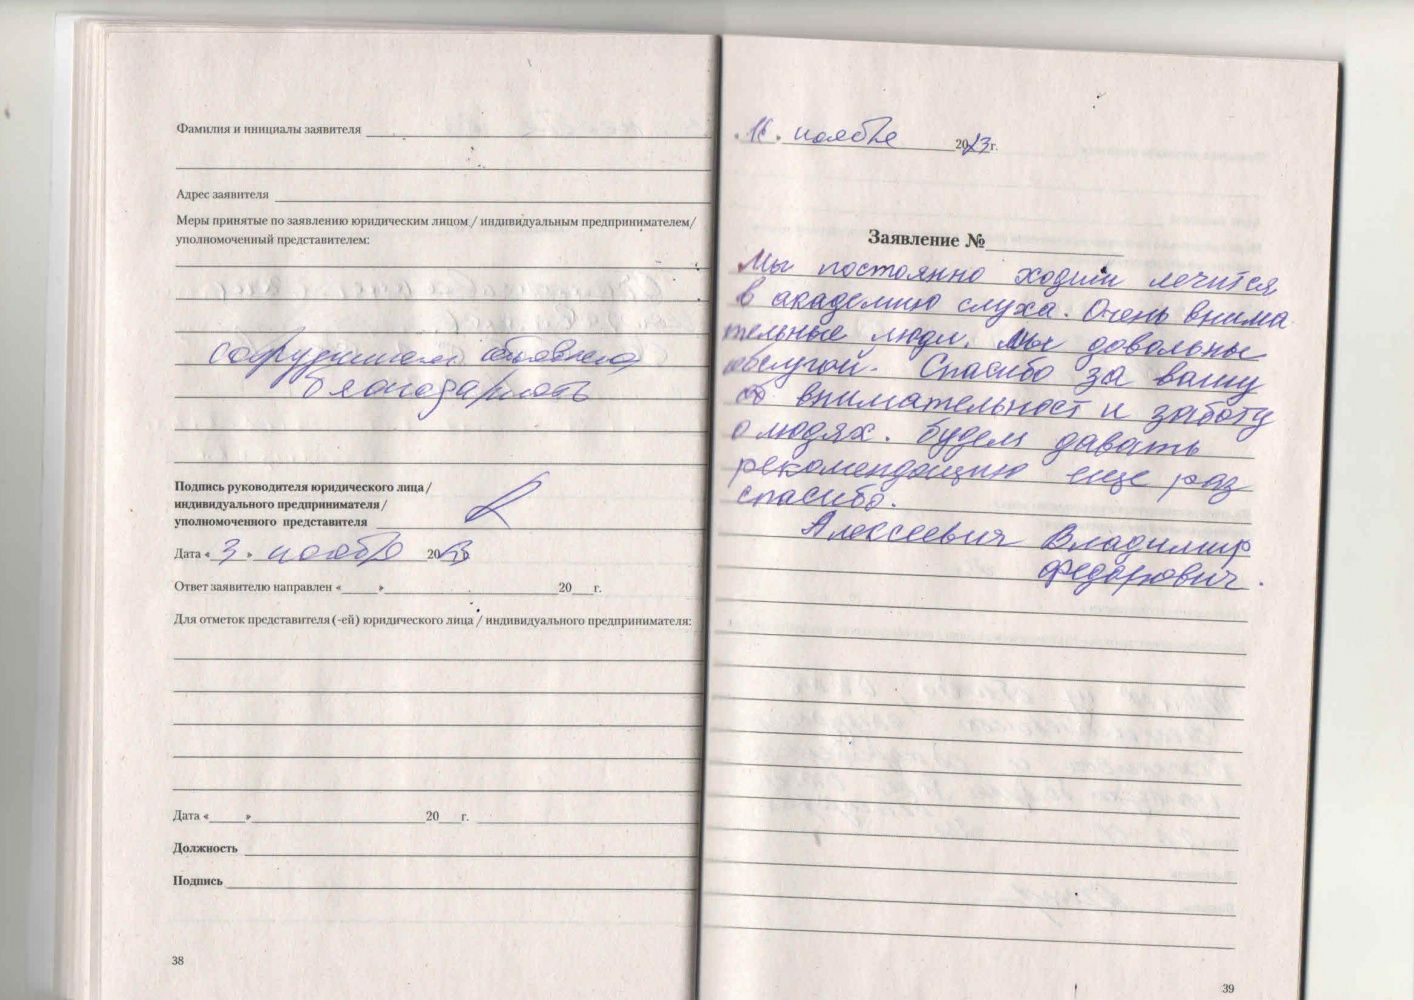 Фамилия и инициалы заявителя
Адрес заявителя
Меры принятые по заявлению юридическим лицом / индивидуальным предпринимателем/
уполномоченный представителем:
сотрудникам объявлена
благодарность
Подпись руководителя юридического лица/
индивидуального предпринимателя/
уполномоченного представителя
Дата «3» ноября 20 г.
Ответ заявителю направлен « » 20 г.
Для отметок представителя (-ей) юридического лица / индивидуального предпринимателя:
Дата « » 20 г.
Должность
Подпись
38
16. ноября 2023г.
Заявление №
Мы постоянно ходим лечится
в академию слуха. Очень внима
тельные люди. Мы довольны
обслугой. Спасибо за вашу
внимательност и заботу
о людях. будем давать
рекомендацию еще раз
спасибо.
Алексеевич Владимир
Федорович.
39